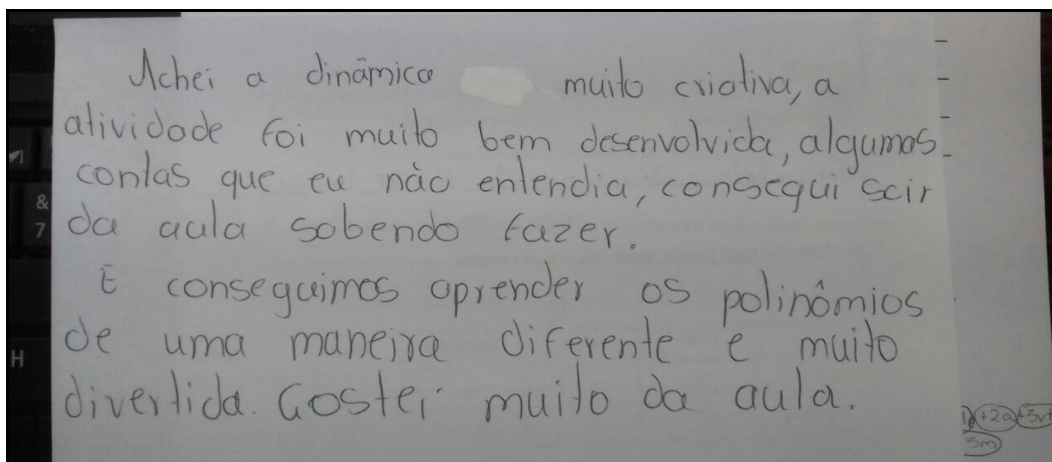 Achei a dinâmica muito criativa, a
atividade foi muito bem desenvolvida, algumas
contas que eu não entendia, consegui sair
da aula sabendo fazer.
E conseguimos aprender os polinômios
de uma maneira diferente e muito
divertida. Gostei muito da aula.
+2a +3vf
3m
&
7
H